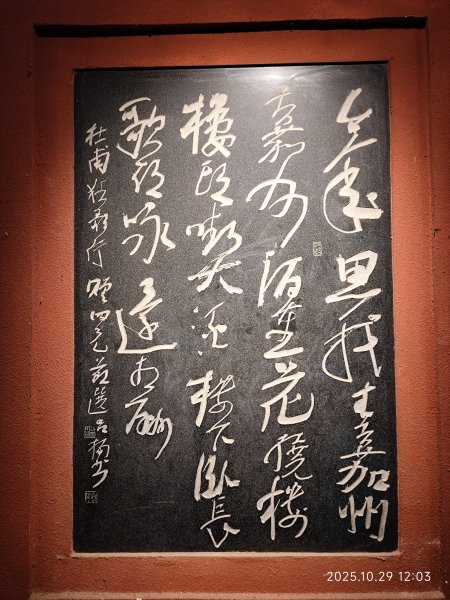 今年思我来嘉州
嘉州酒重花繞楼
楼頭喫酒楼下臥長
歌短咏還相酬
杜甫狂歌行贈四兄
2025.10.29 12:03